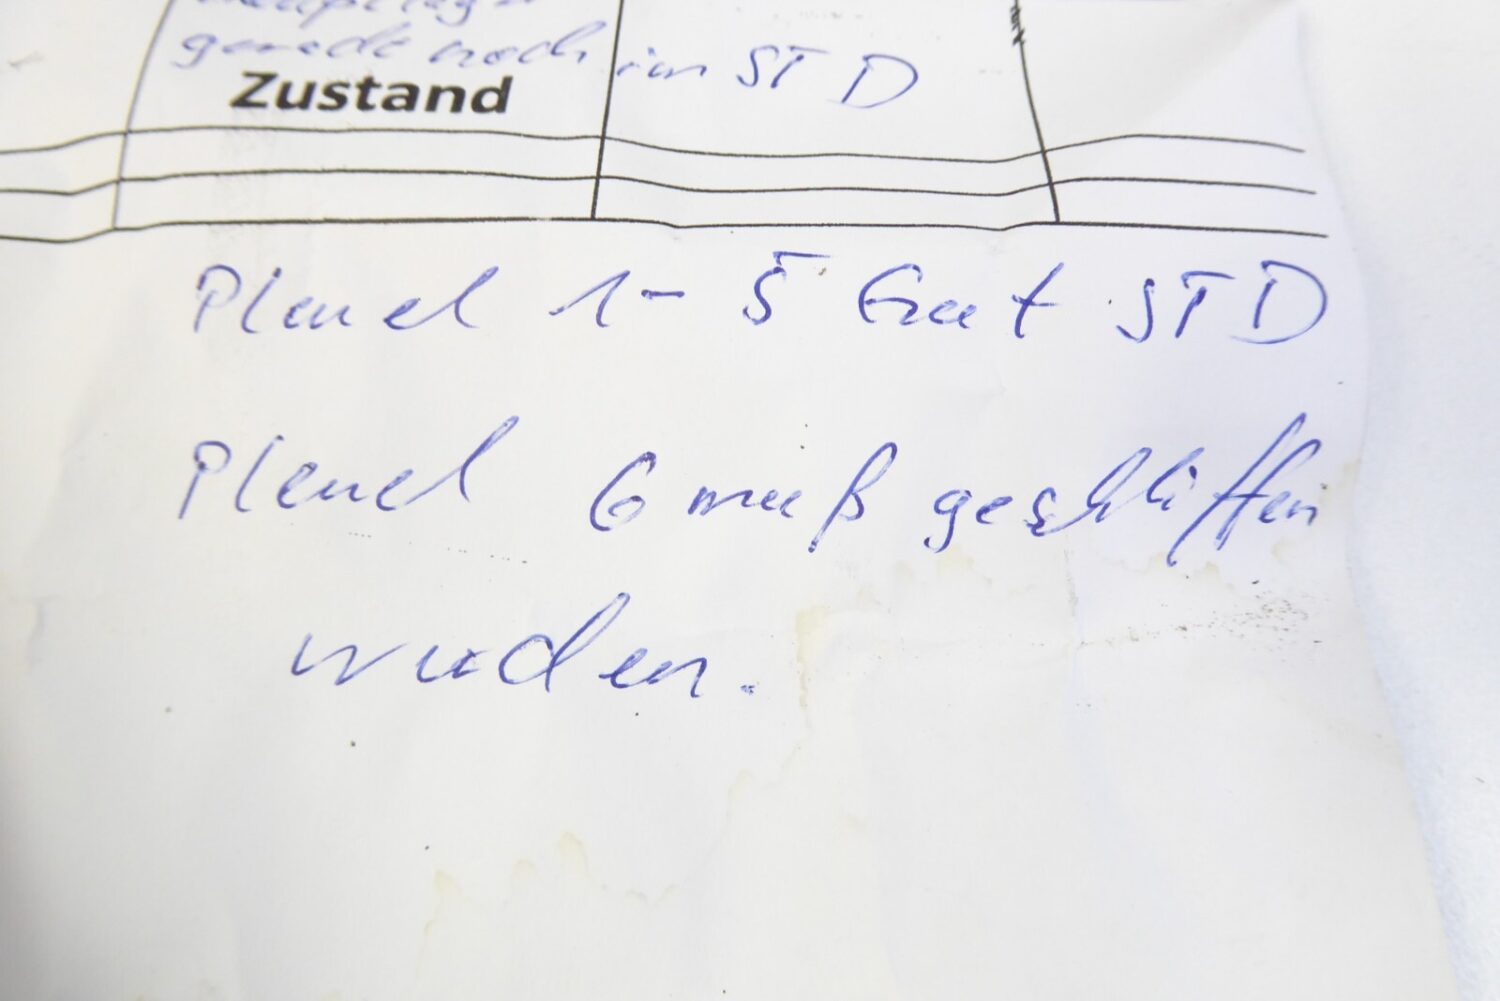 gerade noch im STD
Zustand
Pleuel 1-5 Gut STD
Pleuel 6 muß geschliffen
wuden.